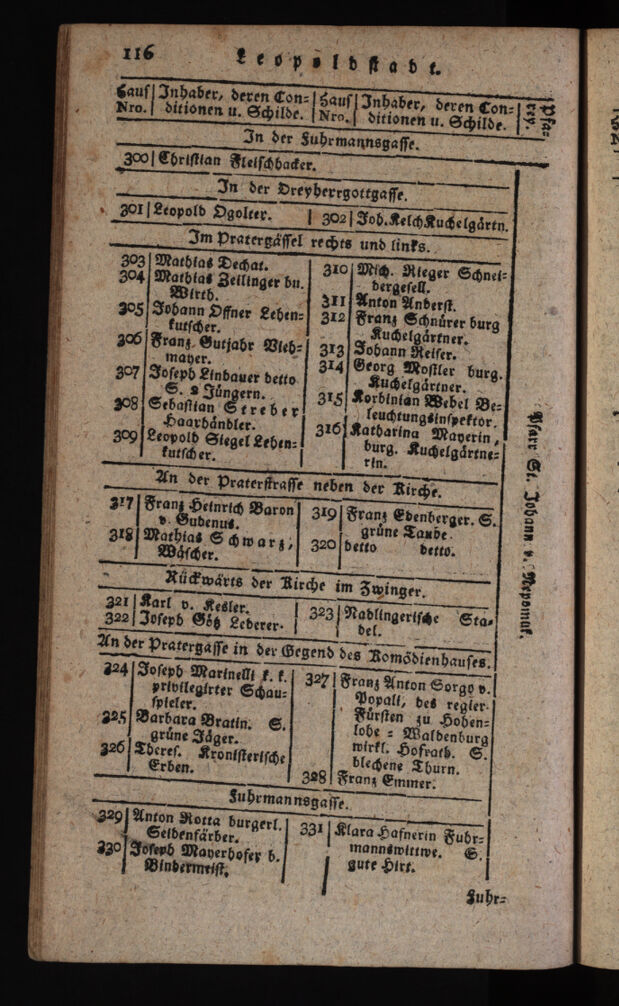 116 Leopoldstadt.
Haus Nro.
Inhaber, deren Con=
ditionen u. Schilde.
Haus Nro.
Inhaber, deren Con=
ditionen u. Schilde.
Pfa=
rey.
In der Fuhrmannsgasse.
300 Christian Fleischhacker.
In der Dreyherrgottgasse.
301 Leopold Ogolter.
302 Joh. Kelch Kuchelgärtn.
Im Pratergässel rechts und links.
303 Mathias Dechat.
304 Mathias Zeilinger bu.
Wirth.
305 Johann Offner Lehen=
kutscher.
306 Franz Gutjahr Vieh=
mayer.
307 Joseph Lindauer detto
S. 2 Jüngern.
308 Sebastian Streher
Haarhändler.
309 Leopold Siegel Lehen=
kutscher.
310 Mich. Rieger Schnei=
dergesell.
311 Anton Anderst.
312 Franz Schnürer burg
Kuchelgärtner.
313 Johann Reiser.
314 Georg Mostler burg.
Kuchelgärtner.
315 Korbinian Webel Be=
leuchtungsinspektor.
316 Katharina Mayerin,
burg. Kuchelgärtne=
rin.
An der Praterstrasse neben der Kirche.
317 Franz Heinrich Baron
v. Gudenus.
318 Mathias Schwarz,
Wäscher.
319 Franz Edenberger. S.
grüne Taube.
320 detto detto.
Rückwärts der Kirche im Zwinger.
321 Karl v. Kesler.
322 Joseph Götz Lederer.
323 Nadlingerische Sta=
del.
An der Pratergasse in der Gegend des Komödienhauses.
324 Joseph Marinelli k. k.
privilegirter Schau=
spieler.
325 Barbara Bratin. S.
grüne Jäger.
326 Theres. Kronisterische
Erben.
327 Franz Anton Sorgo v.
Popali, des regier.
Fürsten zu Hohen=
lohe = Waldenburg
wirkl. Hofrath. S.
blechene Thurn.
328 Franz Emmer.
Fuhrmannsgasse.
329 Anton Rotta burgerl.
Seidenfärber.
330 Joseph Mayerhofer b.
Bindermeist.
331 Klara Hafnerin Fuhr=
mannswittwe. S.
gute Hirt.
Pfarr St. Johann v. Nepomuk.
Fuhr=